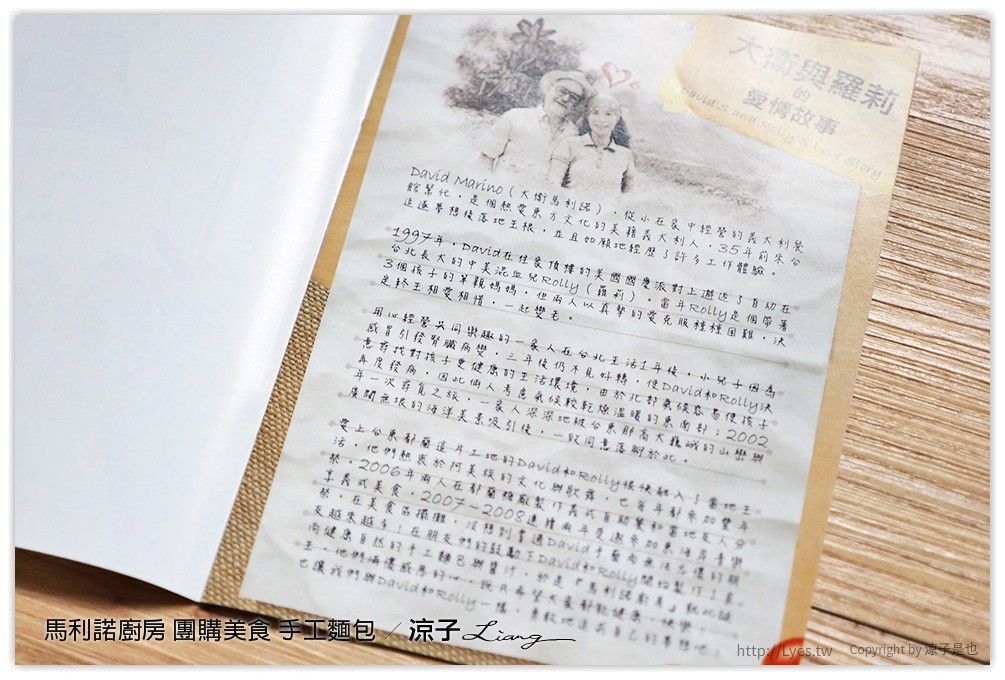 大衛與羅莉
的
愛情故事
David's and Rolly's Love Story
David Marino（大衛馬利諾），從小在家中經營的義大利餐
館幫忙，是個熱愛東方文化的美籍義大利人，35年前來台
追逐夢想後落地生根，並且如願地經歷了許多工作體驗。
1997年，David在住家頂樓的美國國慶派對上邂逅了自幼在
台北長大的中美混血兒Rolly（羅莉）。當年Rolly是個帶著
3個孩子的單親媽媽，但兩人以真摯的愛克服種種困難，決
定終生相愛相惜，一起變老。
用心經營共同樂趣的一家人在台北生活1年後，小兒子因為
感冒引發腎臟病變，三年後仍不見好轉，使David和Rolly決
意尋找對孩子更健康的生活環境。由於北部氣候容易使孩子
再度發病，因此倆人考慮氣候較乾燥溫暖的東南部；2002
年一次尋覓之旅，一家人深深地被台東那高大巍峨的山巒與
廣闊無垠的海洋美景吸引後，一致同意落腳於此。
愛上台東都蘭這片土地的David和Rolly很快融入了當地生
活，他們熱衷於阿美族的文化與歌舞，也每年都參加豐年
祭。2006年兩人在都蘭糖廠製作義式自助餐和當地友人分
享義式美食，2007~2008連續兩年受邀參加東海岸音樂
祭，在美食區擺攤，沒想到嘗過David手藝而無法忘懷的朋
友越來越多！在朋友們的鼓勵下David和Rolly開始製作了趨
向健康自然的手工麵包與醬汁，於是『馬利諾廚房』就此誕
生，他們滿懷感恩的心，說只希望大家都能健康、快樂，
也讓我們與David和Rolly一樣，勇敢地追求自己的夢想吧！
馬利諾廚房 團購美食 手工麵包 / 涼子 Liang
http://Lyes.tw Copyright by 涼子是也